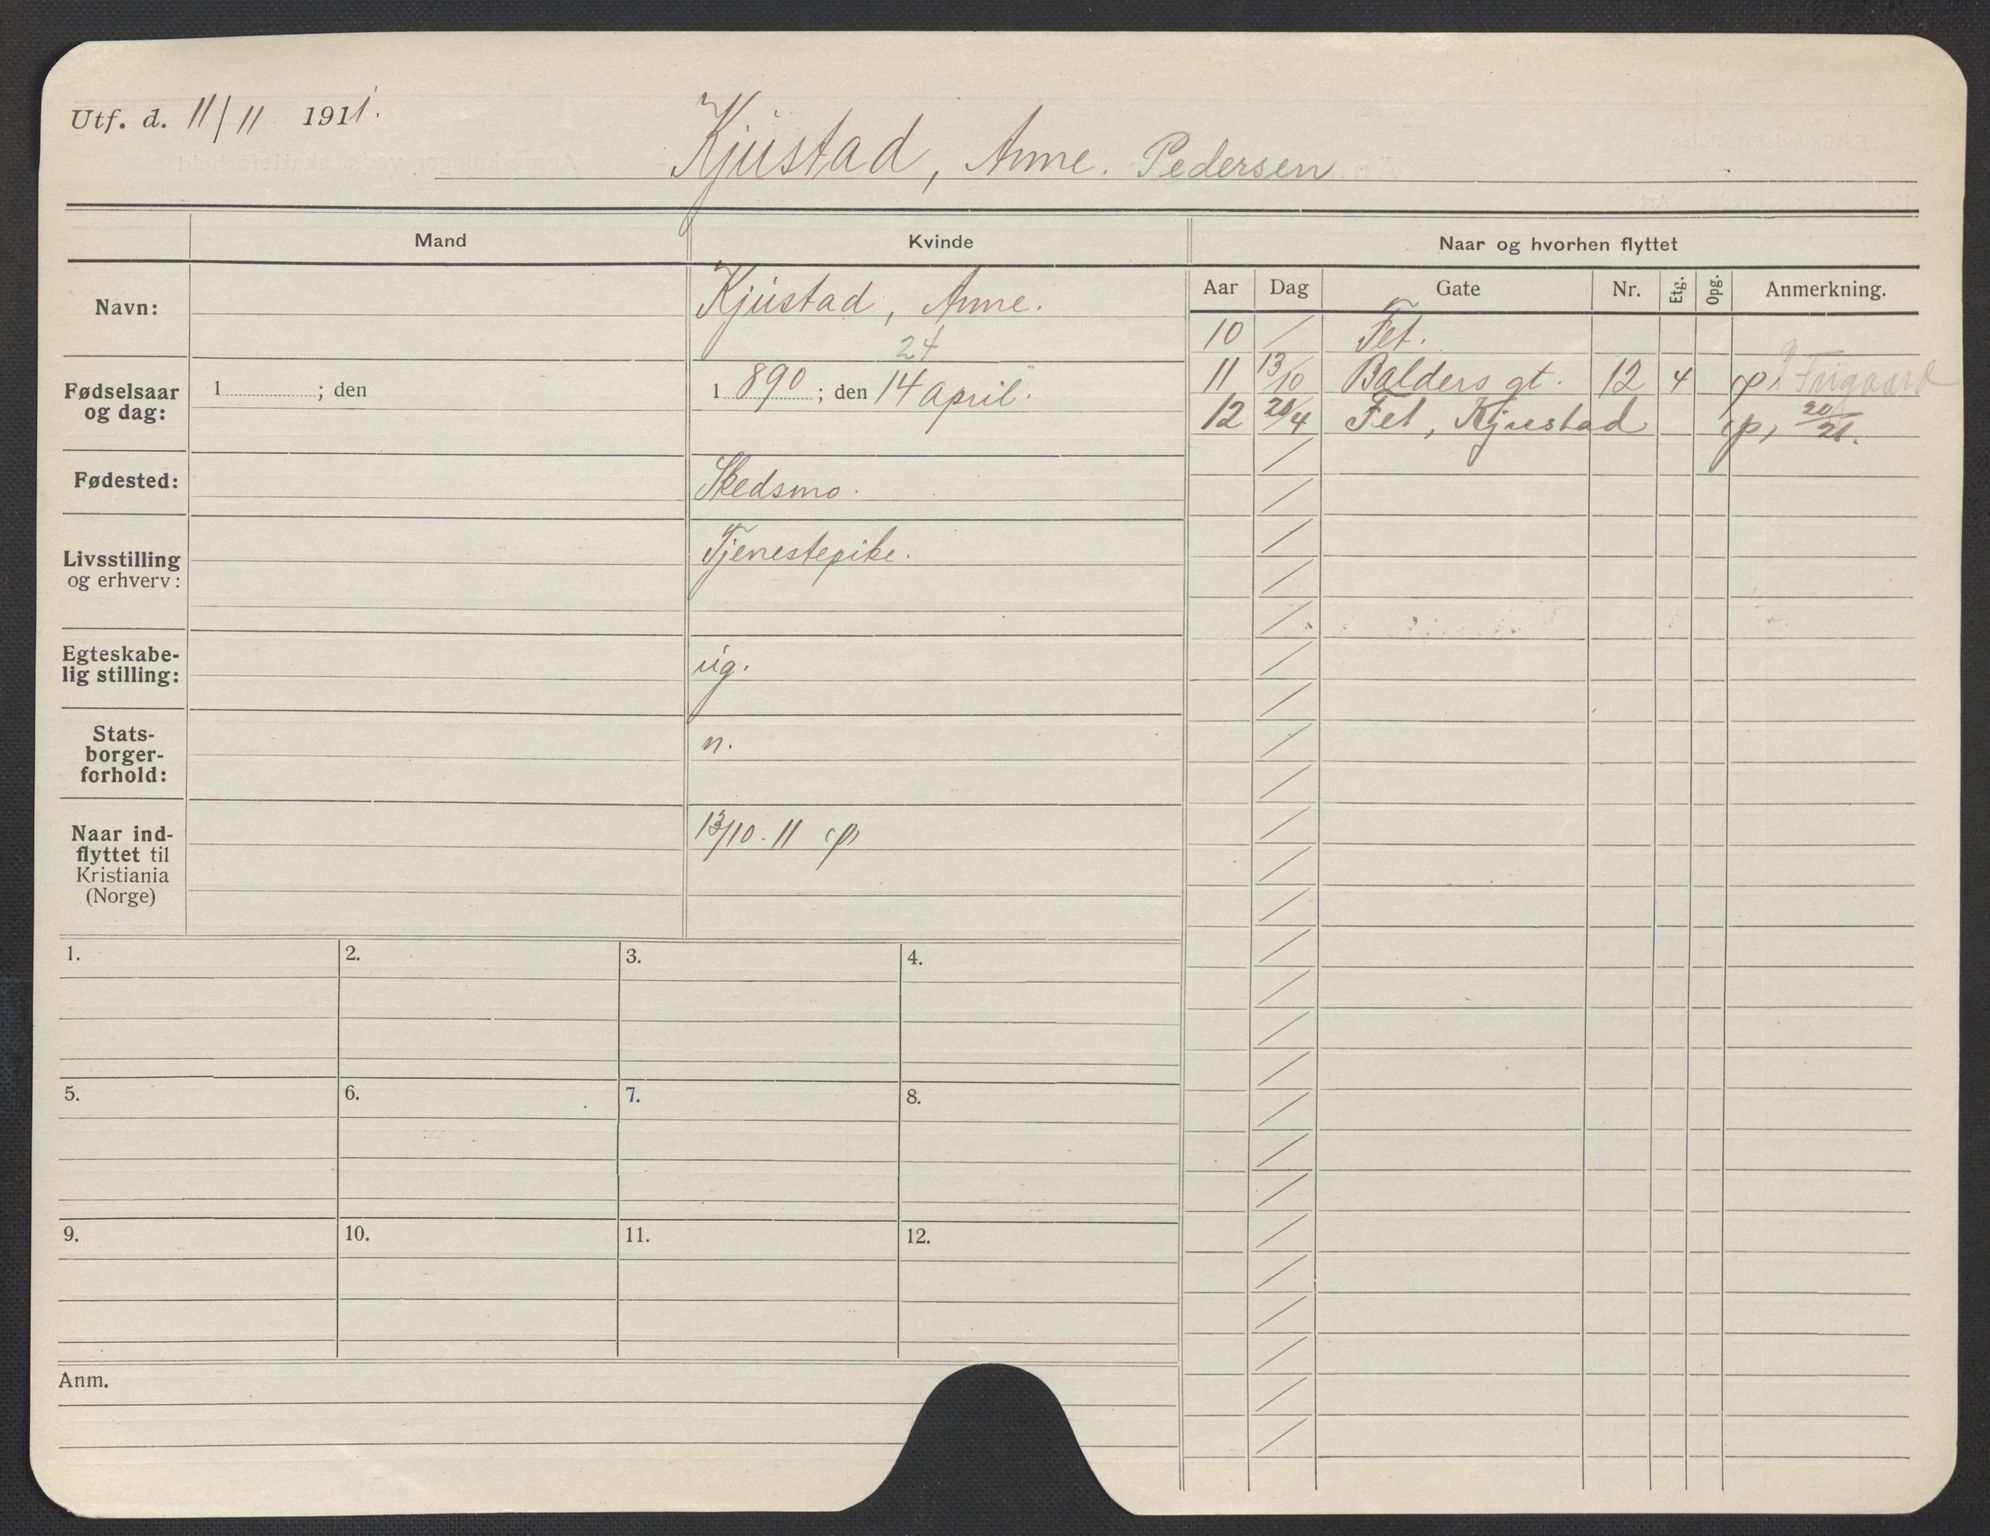 Utf. d. 11/11 1911.
Kjustad, Anne. Pedersen
Mand
Kvinde
Naar og hvorhen flyttet
Navn:
Kjustad, Anne.
Aar Dag Gate Nr. Etg. Opg. Anmerkning.
10 / Fet.
24
Fødselsaar
og dag:
1 ; den
1 890 ; den 14 april.
11 13/10 Balders gt. 12 4 p,
12 20/4 Fet, Kjustad p, 20/21.
Fødested:
Skedsmo.
Livsstilling
og erhverv:
Tjenestepike.
Egteskabe-
lig stilling:
ug.
Stats-
borger-
forhold:
n.
Naar ind-
flyttet til
Kristiania
(Norge)
13/10.11 p,
1. 2. 3. 4.
5. 6. 7. 8.
9. 10. 11. 12.
Anm.